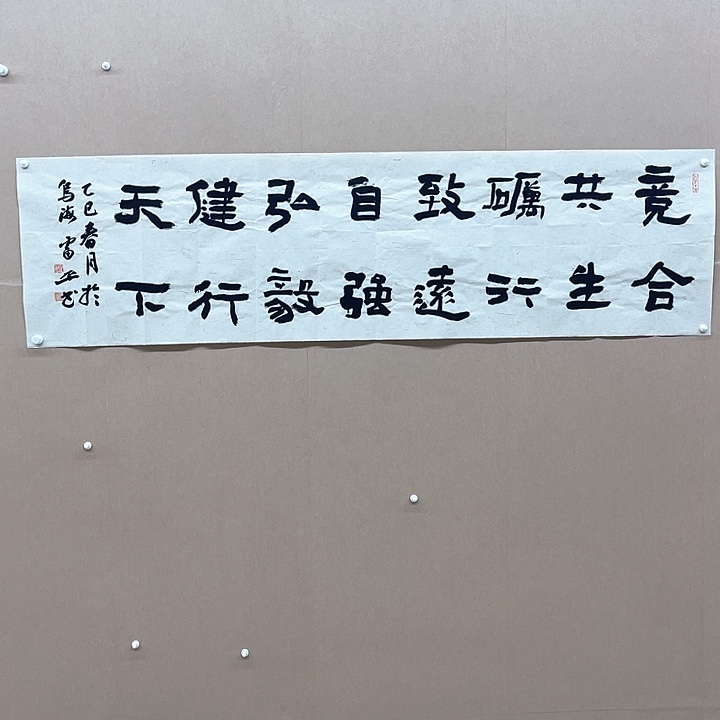 竞合
共生
礪行
致遠
自強
弘毅
健行
天下
乙巳春月於
烏海雷平书